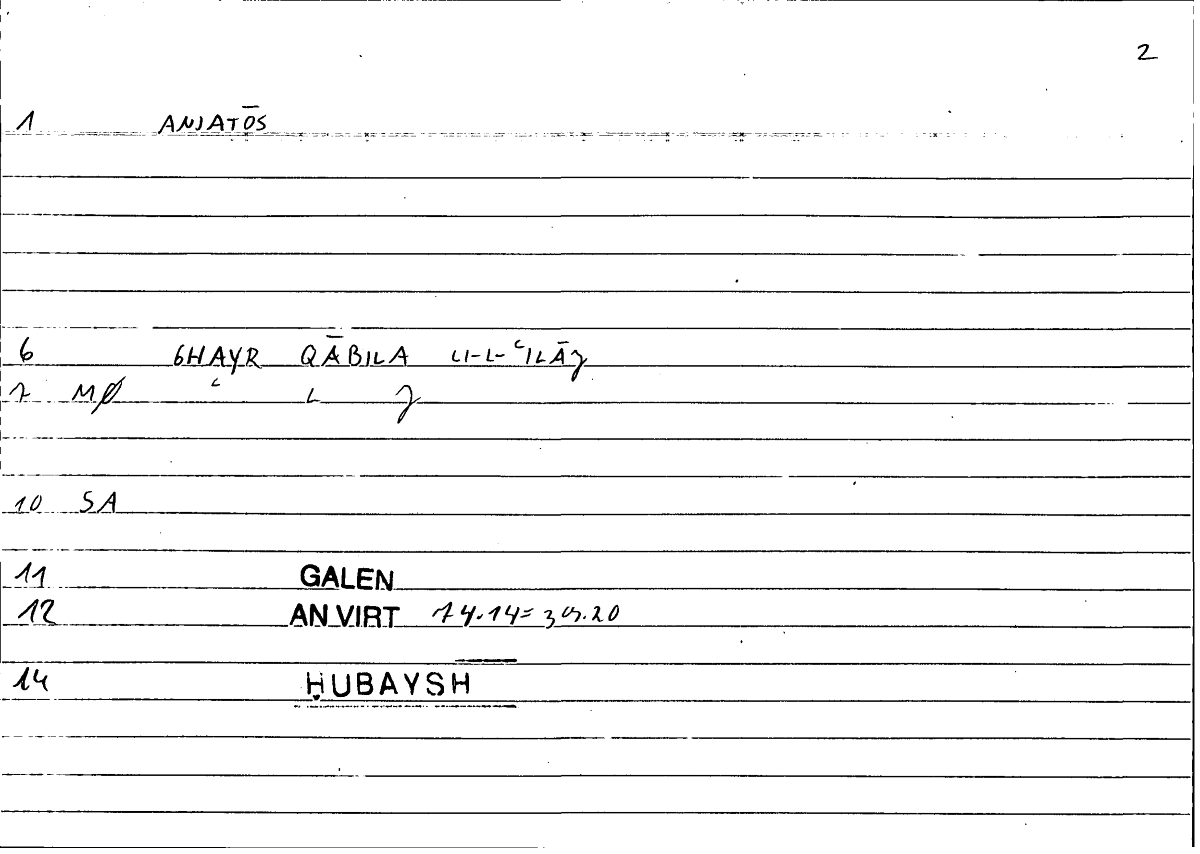 2
1 ANJATŌS
6 GHAYR QĀBILA LI-L-ʿILĀJ
7 MØ ʿ L J
10 SA
11 GALEN
12 AN VIRT 74.14=39.20
14 ḤUBAYSH